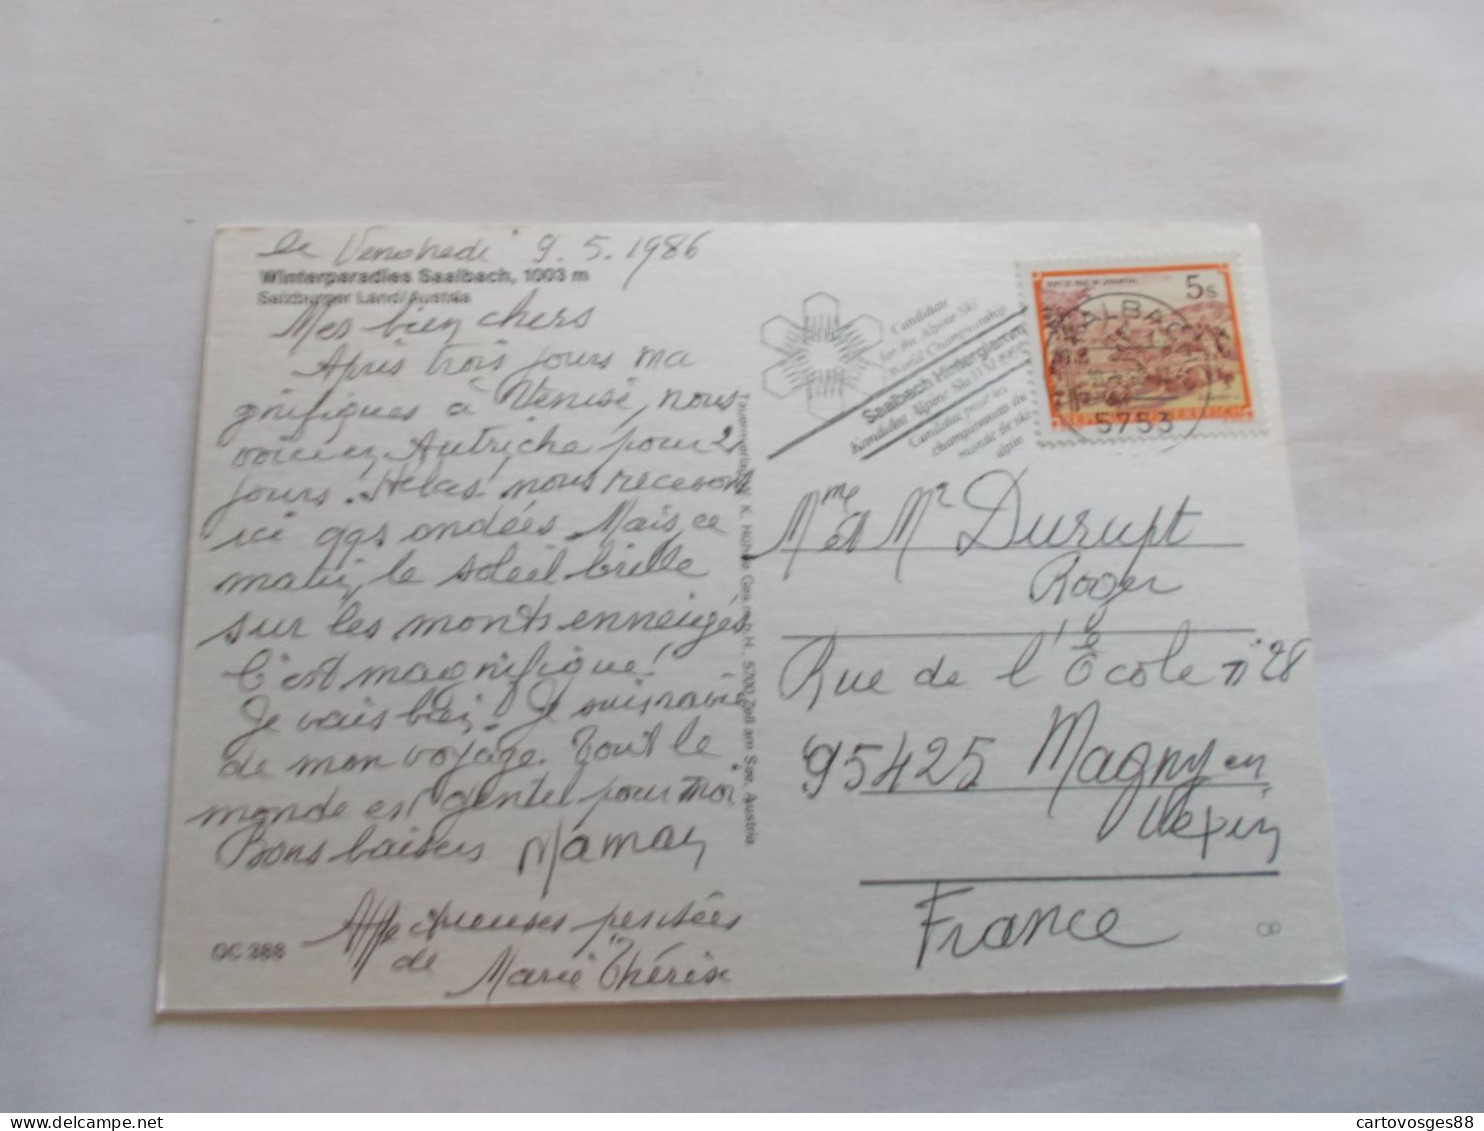 le Vendredi 9.5.1986
Winterparadies Saalbach, 1003 m
Salzburger Land/Austria
Mes bien chers
Après trois jours ma
gnifiques à Venise, nous
voici en Autriche pour 2
jours. Hélas, nous recevons
ici qqs ondées. Mais ce
matin, le soleil brille
sur les monts enneigés
C'est magnifique!
Je vais bien. Je suis ravie
de mon voyage. Tout le
monde est gentil pour moi
Bons baisers Maman
Affectueuses pensées
de Marie Thérèse
GC 388
Tauernverlag W. K. Ges.m.b.H., 5700 Zell am See, Austria
Candidate
for the Alpine Ski
World Championship
Saalbach Hinterglemm
Kandidat Alpine Ski WM
Candidat pour les
championnats du
monde de ski
alpin
5s
SAALBACH
5753
Mme et Mr Durupt
Roger
Rue de l'École n° 28
95425 Magny en
Vexin
France
cartovosges88